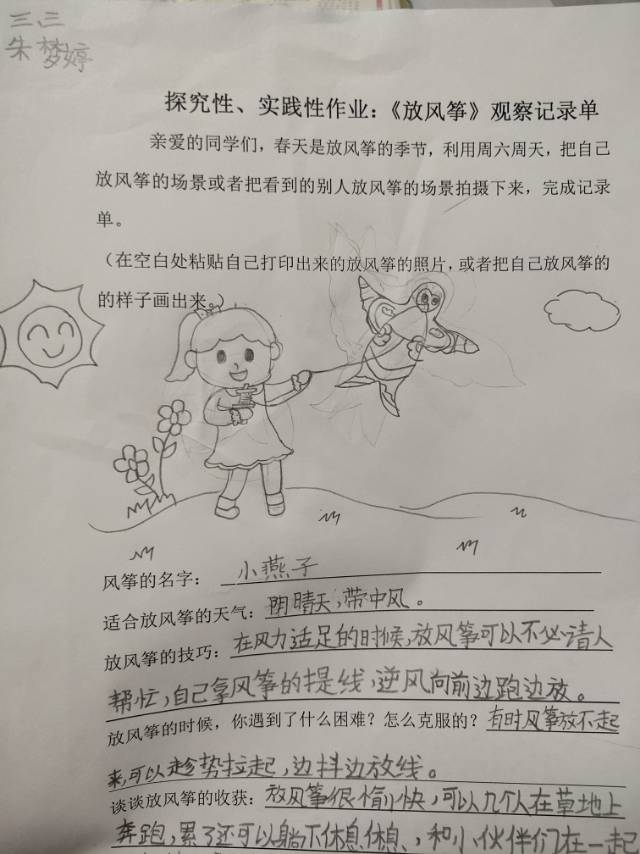 三三
朱梦婷
探究性、实践性作业：《放风筝》观察记录单
亲爱的同学们，春天是放风筝的季节，利用周六周天，把自己
放风筝的场景或者把看到的别人放风筝的场景拍摄下来，完成记录
单。
（在空白处粘贴自己打印出来的放风筝的照片，或者把自己放风筝的
的样子画出来。）
风筝的名字： 小燕子
适合放风筝的天气：阴晴天，带中风。
放风筝的技巧：在风力适足的时候，放风筝可以不必请人
帮忙，自己拿风筝的提线，逆风向前边跑边放。
放风筝的时候，你遇到了什么困难？怎么克服的？有时风筝放不起
来，可以趁势拉起，边抖边放线。
谈谈放风筝的收获：放风筝很愉快，可以几个人在草地上
奔跑，累了还可以躺下休息休息、，和小伙伴们在一起